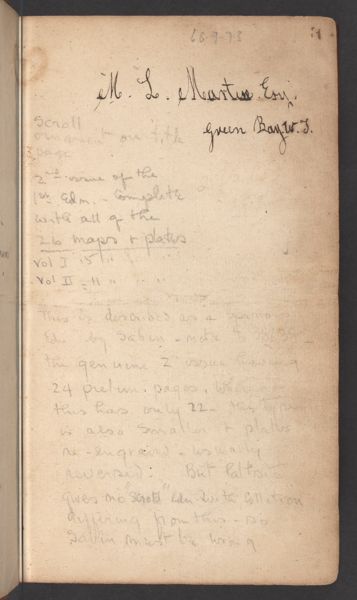 66-9-73
M. L. Martin Esq.
Green Bay W. T.
Scroll
ornament on title
page
2nd issue of the
1st Edn. - Complete
with all of the
26 maps & plates
Vol I 15 " "
Vol II - 11 " " "
This is described as a spurious
Ed. by Sabin - note to
the genuine 2 issue having
24 prelim. pages, while
this has only 22 - the type
is also smaller & plates
re-engraved - usually
reversed. But Paltsits
gives no "Scroll" Edn. with collation
differing from this - so
Sabin must be wrong